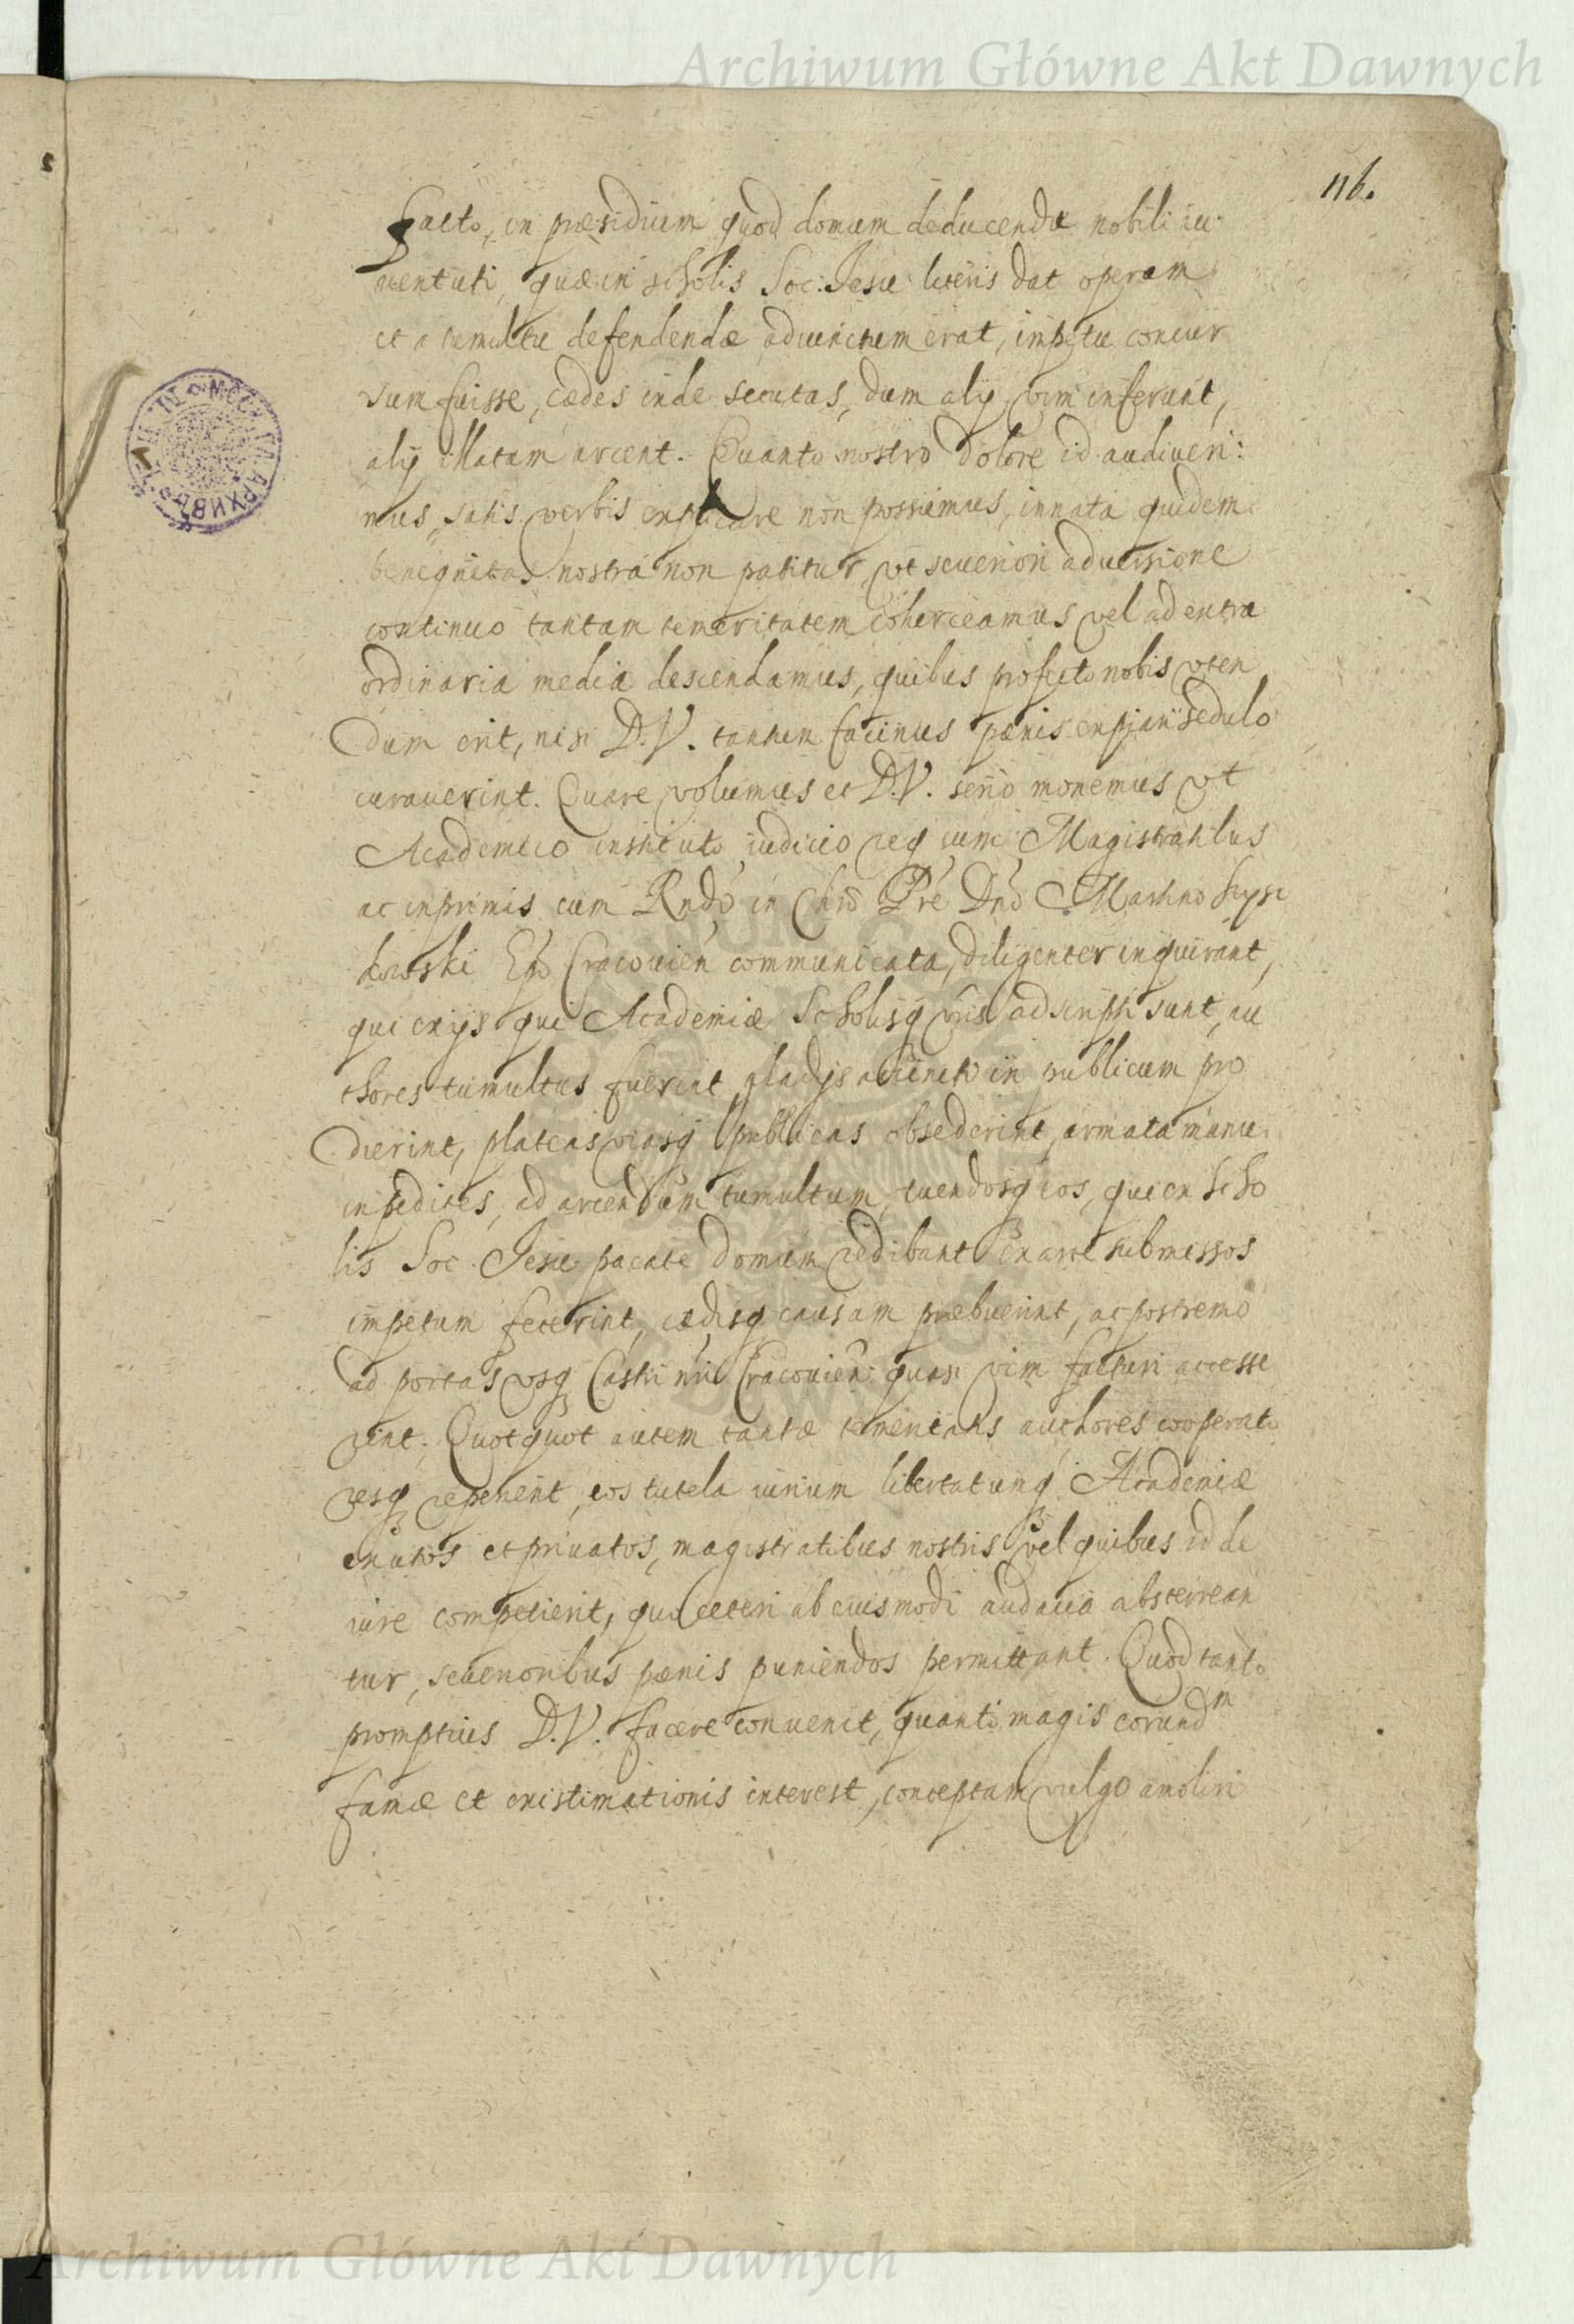 Archiwum Główne Akt Dawnych
116.
Facto, in præsidium quod domum deducendæ nobili iu-
uentuti, quæ in scholis Soc: Jesu literis dat operam
et a tumultu defendendæ adiunctum erat, impetu concur
sum fuisse, cædes inde secutas, dum alij vim inferunt,
alij illatam arcent. Quanto nostro dolore id audiveri:
mus, satis verbis explicare non possumus, innata quidem
benignitas nostra non patitur, vt seueriori aduersione
continuo tantam temeritatem coherceamus vel ad extra
ordinaria media descendamus, quibus profecto nobis vten
dum erit, nisi D.V. tantum facinus pænis expiari sedulo
curauerint. Quare volumus et D.V. serio monemus vt
Academico instituto iudicio req cum Magistratibus
ac inprimis cum Rndo in Chro Pre Dno Martino Szysz
kowski Epo Cracouien communicata, diligenter inquirant,
qui ex ijs qui Academiæ Scholisq vris adscripti sunt, au
thores tumultus fuerint, gladijs accincti in publicum pro
dierint, plateas viasq publicas obsederint, armata manu
in pedites, ad arcendum tumultum, tuendosq eos, qui ex scho
lis Soc. Jesu pacate domum redibant ex arce submissos
impetum fecerint, cædisq causam præbuerint, ac postremo
ad portas vsq Castri nri Cracouien: quasi vim facturi accesse
rint. Quotquot autem tantæ temeritatis authores cooperato
resq repererint, eos tutela iurium libertatumq Academiæ
exutos et priuatos, magistratibus nostris vel quibus id de
iure competierit, quo ceteri ab eiusmodi audacia absterrean
tur, seuerioribus pænis puniendos permittant. Quod tanto
promptius D.V. facere conuenit, quanto magis eorundm
famæ et existimationis interest, conceptam vulgo amoliri
Archiwum Główne Akt Dawnych